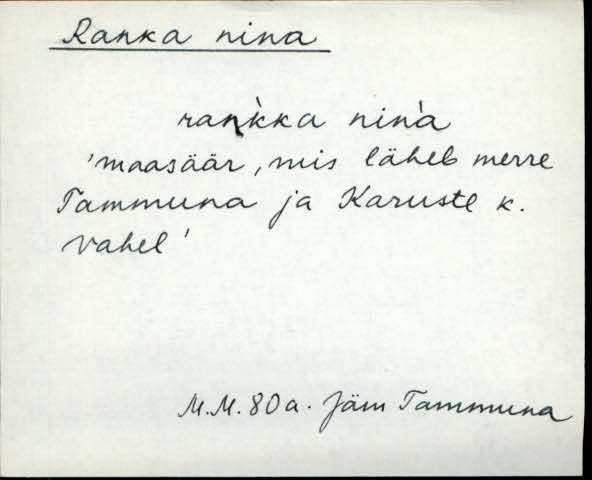 Ranka nina
ran̆kka nin̆a
'maasäär, mis läheb merre
Tammuna ja Karuste k.
vahel'
M.M. 80a. Jäm Tammuna